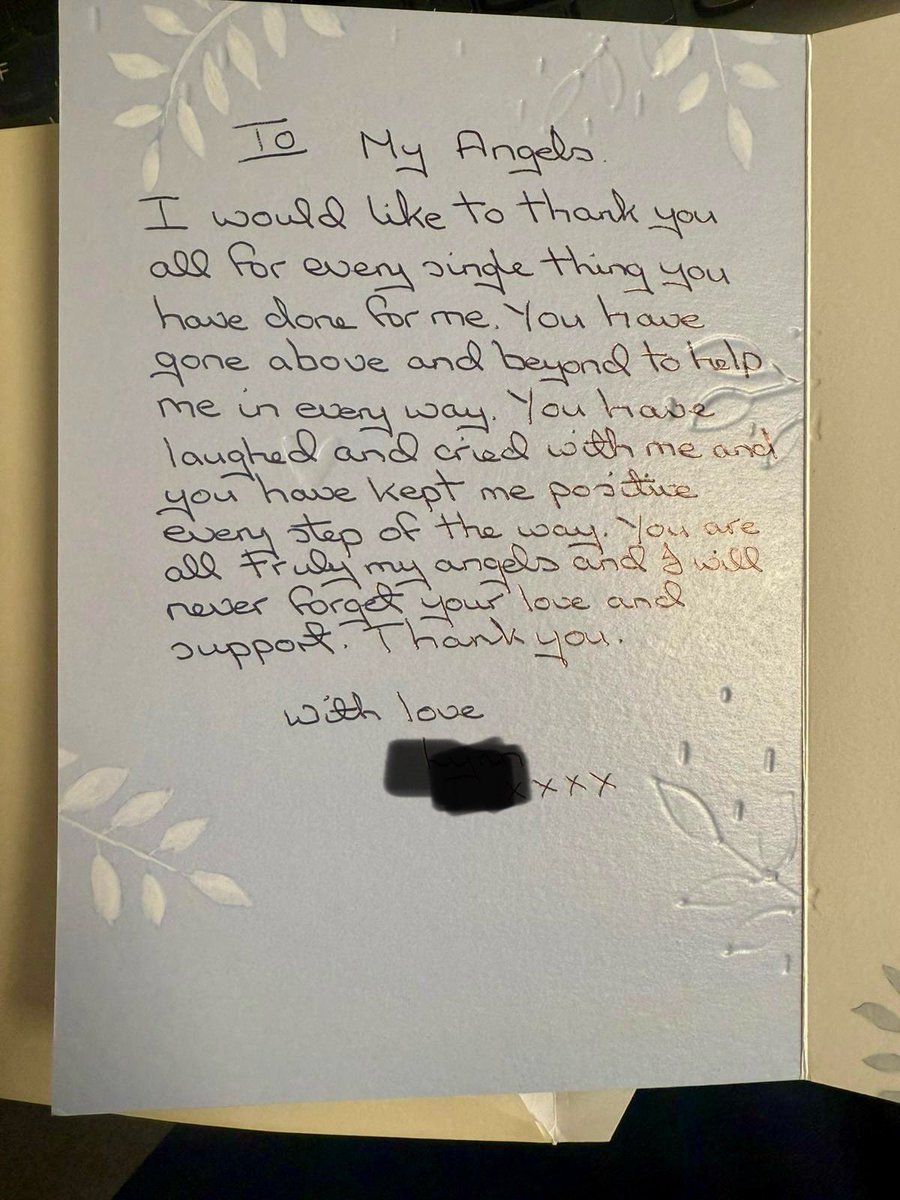 To My Angels.
I would like to thank you
all for every single thing you
have done for me. You have
gone above and beyond to help
me in every way. You have
laughed and cried with me and
you have kept me positive
every step of the way. You are
all truly my angels and I will
never forget your love and
support. Thank you.
with love
xxxx